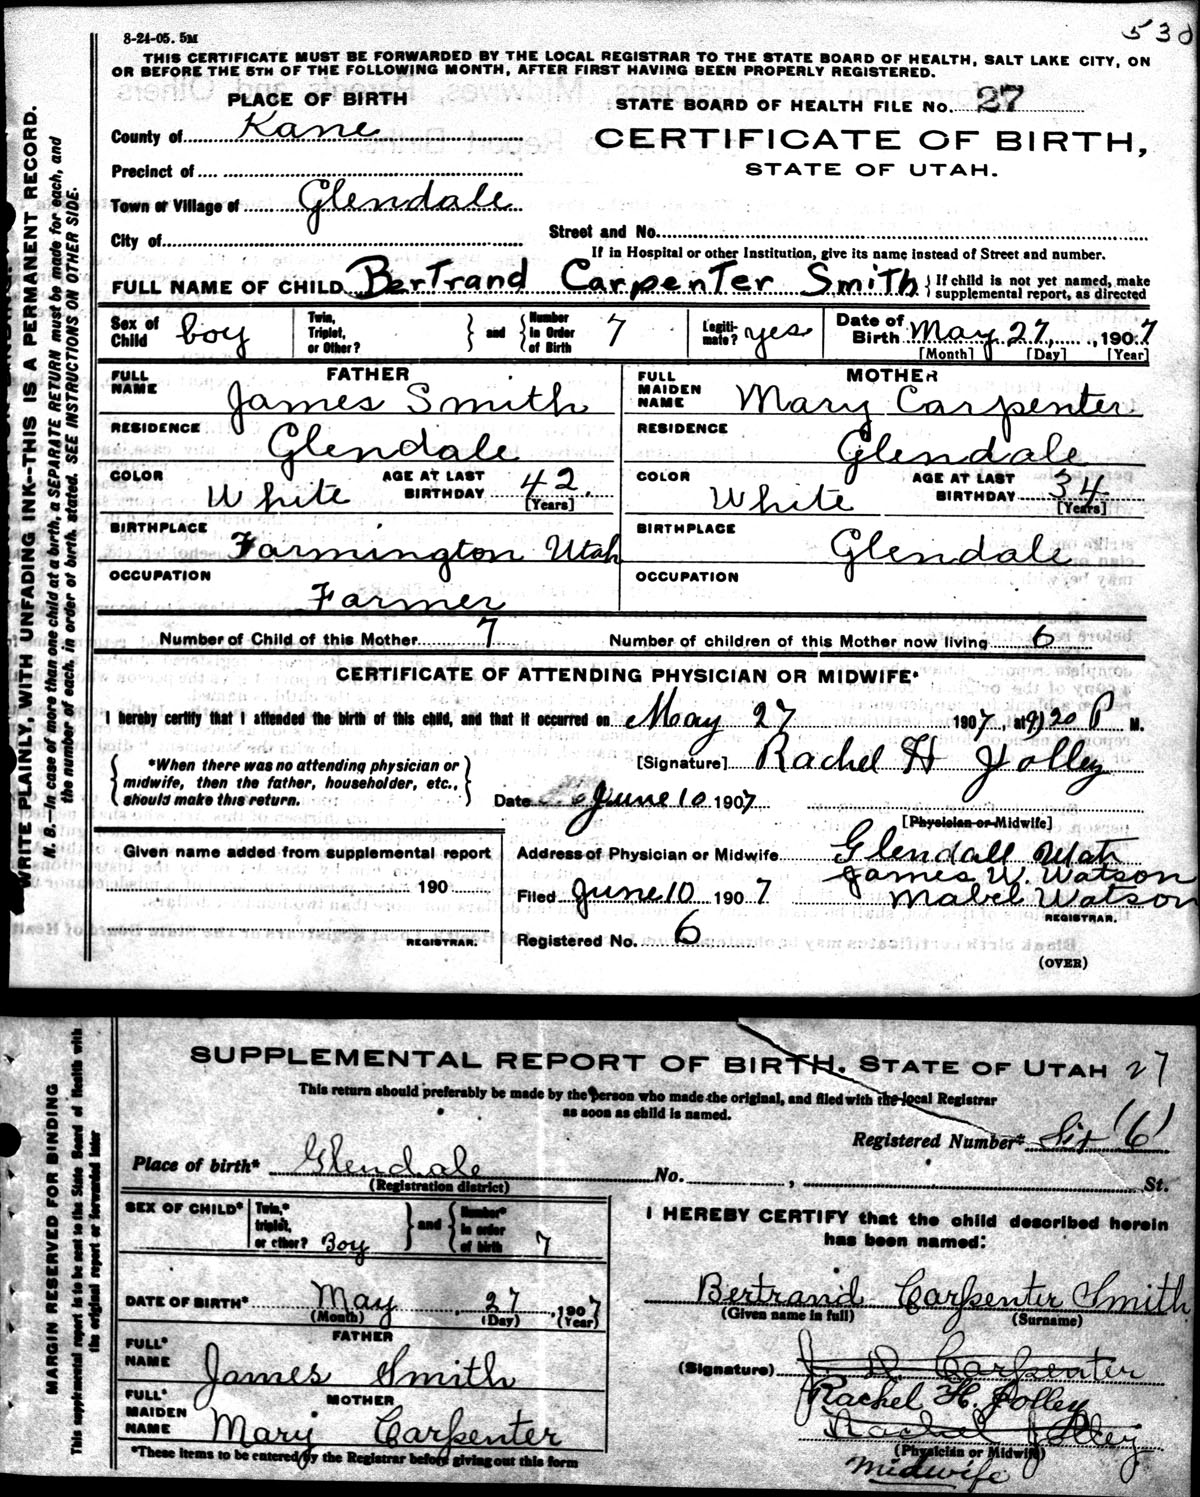 530
8-24-05. 5M
THIS CERTIFICATE MUST BE FORWARDED BY THE LOCAL REGISTRAR TO THE STATE BOARD OF HEALTH, SALT LAKE CITY, ON
OR BEFORE THE 5TH OF THE FOLLOWING MONTH, AFTER FIRST HAVING BEEN PROPERLY REGISTERED.
WRITE PLAINLY, WITH UNFADING INK--THIS IS A PERMANENT RECORD.
N. B.--In case of more than one child at a birth, a SEPARATE RETURN must be made for each, and
the number of each, in order of birth, stated. SEE INSTRUCTIONS ON OTHER SIDE.
PLACE OF BIRTH
County of Kane
Precinct of
Town or Village of Glendale
City of
STATE BOARD OF HEALTH FILE No. 27
CERTIFICATE OF BIRTH,
STATE OF UTAH.
Street and No.
If in Hospital or other Institution, give its name instead of Street and number.
FULL NAME OF CHILD Bertrand Carpenter Smith { If child is not yet named, make
supplemental report, as directed
Sex of Child boy
Twin, Triplet, or Other? } and { Number in Order of Birth 7
Legitimate? yes
Date of Birth May 27, 1907
[Month] [Day] [Year]
FATHER
FULL NAME James Smith
RESIDENCE Glendale
COLOR White AGE AT LAST BIRTHDAY 42. [Years]
BIRTHPLACE Farmington Utah
OCCUPATION Farmer
MOTHER
FULL MAIDEN NAME Mary Carpenter
RESIDENCE Glendale
COLOR White AGE AT LAST BIRTHDAY 34 [Years]
BIRTHPLACE Glendale
OCCUPATION
Number of Child of this Mother 7 Number of children of this Mother now living 6
CERTIFICATE OF ATTENDING PHYSICIAN OR MIDWIFE*
I hereby certify that I attended the birth of this child, and that it occurred on May 27 1907, at 9,20 P M.
{ *When there was no attending physician or
midwife, then the father, householder, etc.,
should make this return. }
[Signature] Rachel H Jolley
Date June 10 1907
[Physician or Midwife]
Given name added from supplemental report
190
REGISTRAR.
Address of Physician or Midwife Glendall Utah
James W. Watson
Filed June 10 1907 Mabel Watson
REGISTRAR.
Registered No. 6
(OVER)
MARGIN RESERVED FOR BINDING
This supplemental report is to be sent to the State Board of Health with
the original report or forwarded later
SUPPLEMENTAL REPORT OF BIRTH. STATE OF UTAH 27
This return should preferably be made by the person who made the original, and filed with the local Registrar
as soon as child is named.
Registered Number* Six (6)
Place of birth* Glendale No. , St.
(Registration district)
SEX OF CHILD* Twin,* triplet, or other? Boy } and { Number* in order of birth 7
DATE OF BIRTH* May 27, 1907
(Month) (Day) (Year)
FATHER
FULL* NAME James Smith
MOTHER
FULL* MAIDEN NAME Mary Carpenter
*These items to be entered by the Registrar before giving out this form
I HEREBY CERTIFY that the child described herein
has been named:
Bertrand Carpenter Smith
(Given name in full) (Surname)
(Signature) J D Carpenter
Rachel H. Jolley
Rachel Jolley
(Physician or Midwife)
Midwife